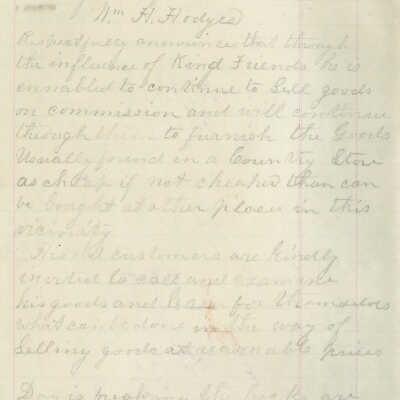 Wm H. Hodges
Respectfully announces that through
the influence of Kind Friends he is
ennabled to continue to Sell goods
on commission and will continue
through them to furnish the Goods
Usually found in a Country Store
as cheap if not cheaper than can
be bought at other place in this
vicinity.
Friend customers are kindly
invited to call and examine
his goods and learn for themselves
what can be done in the way of
selling goods at reasonable prices
Day is breaking the are